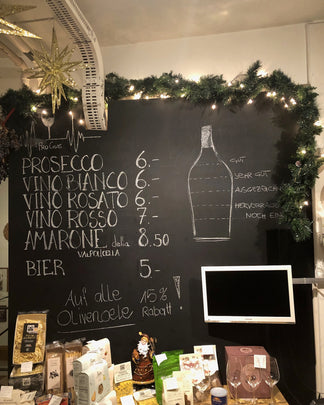 PROSECCO 6.-
VINO BIANCO 6.-
VINO ROSATO 6.-
VINO ROSSO 7.-
AMARONE della 8.50
VALPOLICELLA
BIER 5.-
Auf alle 15%
Olivenoele Rabatt!
GUT
SEHR GUT
NOCH EINE